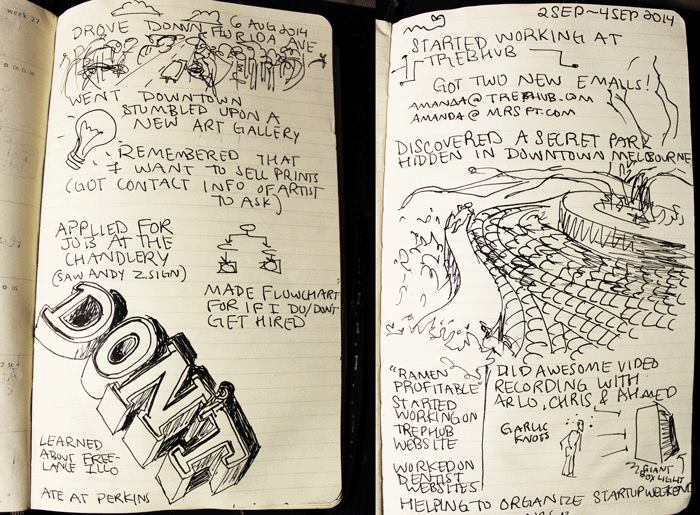 week 27
6 AUG 2014
DROVE DOWN FLORIDA AVE
WENT DOWNTOWN
STUMBLED UPON A
NEW ART GALLERY
REMEMBERED THAT
I WANT TO SELL PRINTS
(GOT CONTACT INFO OF ARTIST
TO ASK)
APPLIED FOR
JOB AT THE
CHANDLERY
(SAW ANDY Z SIGN)
MADE FLOWCHART
FOR IF I DO/DON'T
GET HIRED
DON'T
LEARNED
ABOUT FREE-
LANCE ILLO
ATE AT PERKINS
2 SEP ~ 4 SEP 2014
STARTED WORKING AT
TREPHUB
GOT TWO NEW EMAILS!
AMANDA@TREPHUB.COM
AMANDA@MRSFT.COM
DISCOVERED A SECRET PARK
HIDDEN IN DOWNTOWN MELBOURNE
"RAMEN
PROFITABLE"
STARTED
WORKING ON
TREPHUB
WEBSITE
WORKED ON
DENTIST
WEBSITES
DID AWESOME VIDEO
RECORDING WITH
ARLO, CHRIS & AHMED
GARLIC
KNOTS
GIANT
BOX LIGHT
HELPING TO ORGANIZE STARTUP WEEKEND